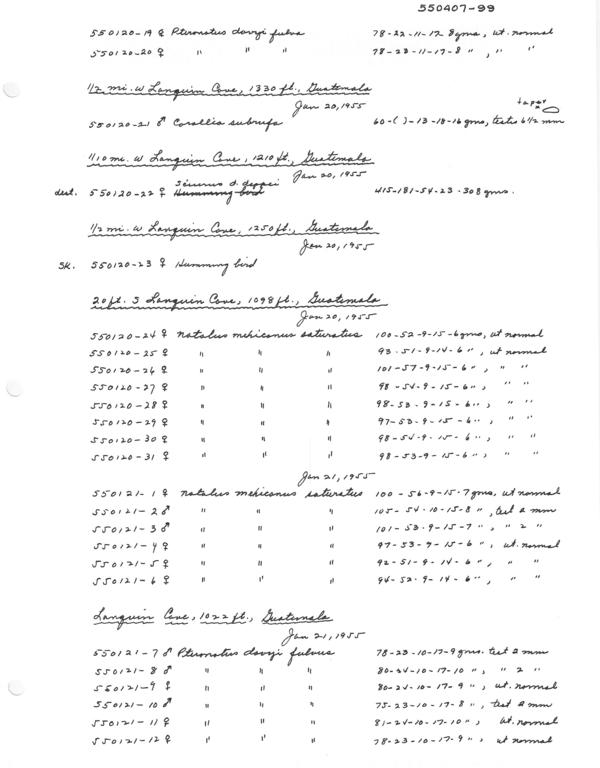 550407-99
550120-19 ♀ Pteronotus davyi fulva 78-22-11-17 8gms, ut. normal
550120-20 ♀ " " " 78-23-11-17-8 " , " "
1/2 mi. W Lanquin Cave, 1330 ft., Guatemala
Jan 20, 1955
550120-21 ♂ Carollia subrufa 60-( )-13-18-16 gms, testis 6 1/2 mm
1/10 mi. W Lanquin Cave, 1210 ft., Guatemala
Jan 20, 1955
Sciurus d. deppei
dest. 550120-22 ♀ Humming bird 415-181-54-23-308 gms.
1/2 mi. W Lanquin Cave, 1250 ft., Guatemala
Jan 20, 1955
SK. 550120-23 ♀ Humming bird
20 ft. S Lanquin Cave, 1098 ft., Guatemala
Jan 20, 1955
550120-24 ♀ Natalus mexicanus saturatus 100-52-9-15-6gms, ut normal
550120-25 ♀ " " " 93-51-9-14-6 " , ut normal
550120-26 ♀ " " " 101-57-9-15-6 " , " "
550120-27 ♀ " " " 98-54-9-15-6 " , " "
550120-28 ♀ " " " 98-53-9-15-6 " , " "
550120-29 ♀ " " " 97-53-9-15-6 " , " "
550120-30 ♀ " " " 98-54-9-15-6 " , " "
550120-31 ♀ " " " 98-53-9-15-6 " , " "
Jan 21, 1955
550121-1 ♀ Natalus mexicanus saturatus 100-56-9-15-7 gms, ut normal
550121-2 ♂ " " " 105-54-10-15-8 " , test 2 mm
550121-3 ♂ " " " 101-53-9-15-7 " , " 2 "
550121-4 ♀ " " " 97-53-9-15-6 " , ut. normal
550121-5 ♀ " " " 92-51-9-14-6 " , " "
550121-6 ♀ " " " 94-52-9-14-6 " , " "
Lanquin Cave, 1022 ft., Guatemala
Jan 21, 1955
550121-7 ♂ Pteronotus davyi fulvus 78-23-10-17-9 gms. test 2 mm
550121-8 ♂ " " " 80-24-10-17-10 " , " 2 "
550121-9 ♀ " " " 80-24-10-17-9 " , ut. normal
550121-10 ♂ " " " 75-23-10-17-8 " , test 2 mm
550121-11 ♀ " " " 81-24-10-17-10 " , ut. normal
550121-12 ♀ " " " 78-23-10-17-9 " , ut normal